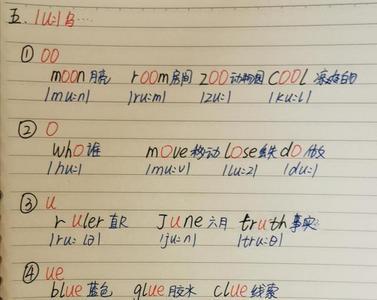 五. /u:/ 乌...
① oo
moon 月亮 room 房间 zoo 动物园 cool 凉爽的
/mu:n/ /ru:m/ /zu:/ /ku:l/
② o
who 谁 move 移动 lose 丢失 do 做
/hu:/ /mu:v/ /lu:z/ /du:/
③ u
ruler 直尺 June 六月 truth 事实
/ju:n/ /tru:θ/
④ ue
blue 蓝色 glue 胶水 clue 线索